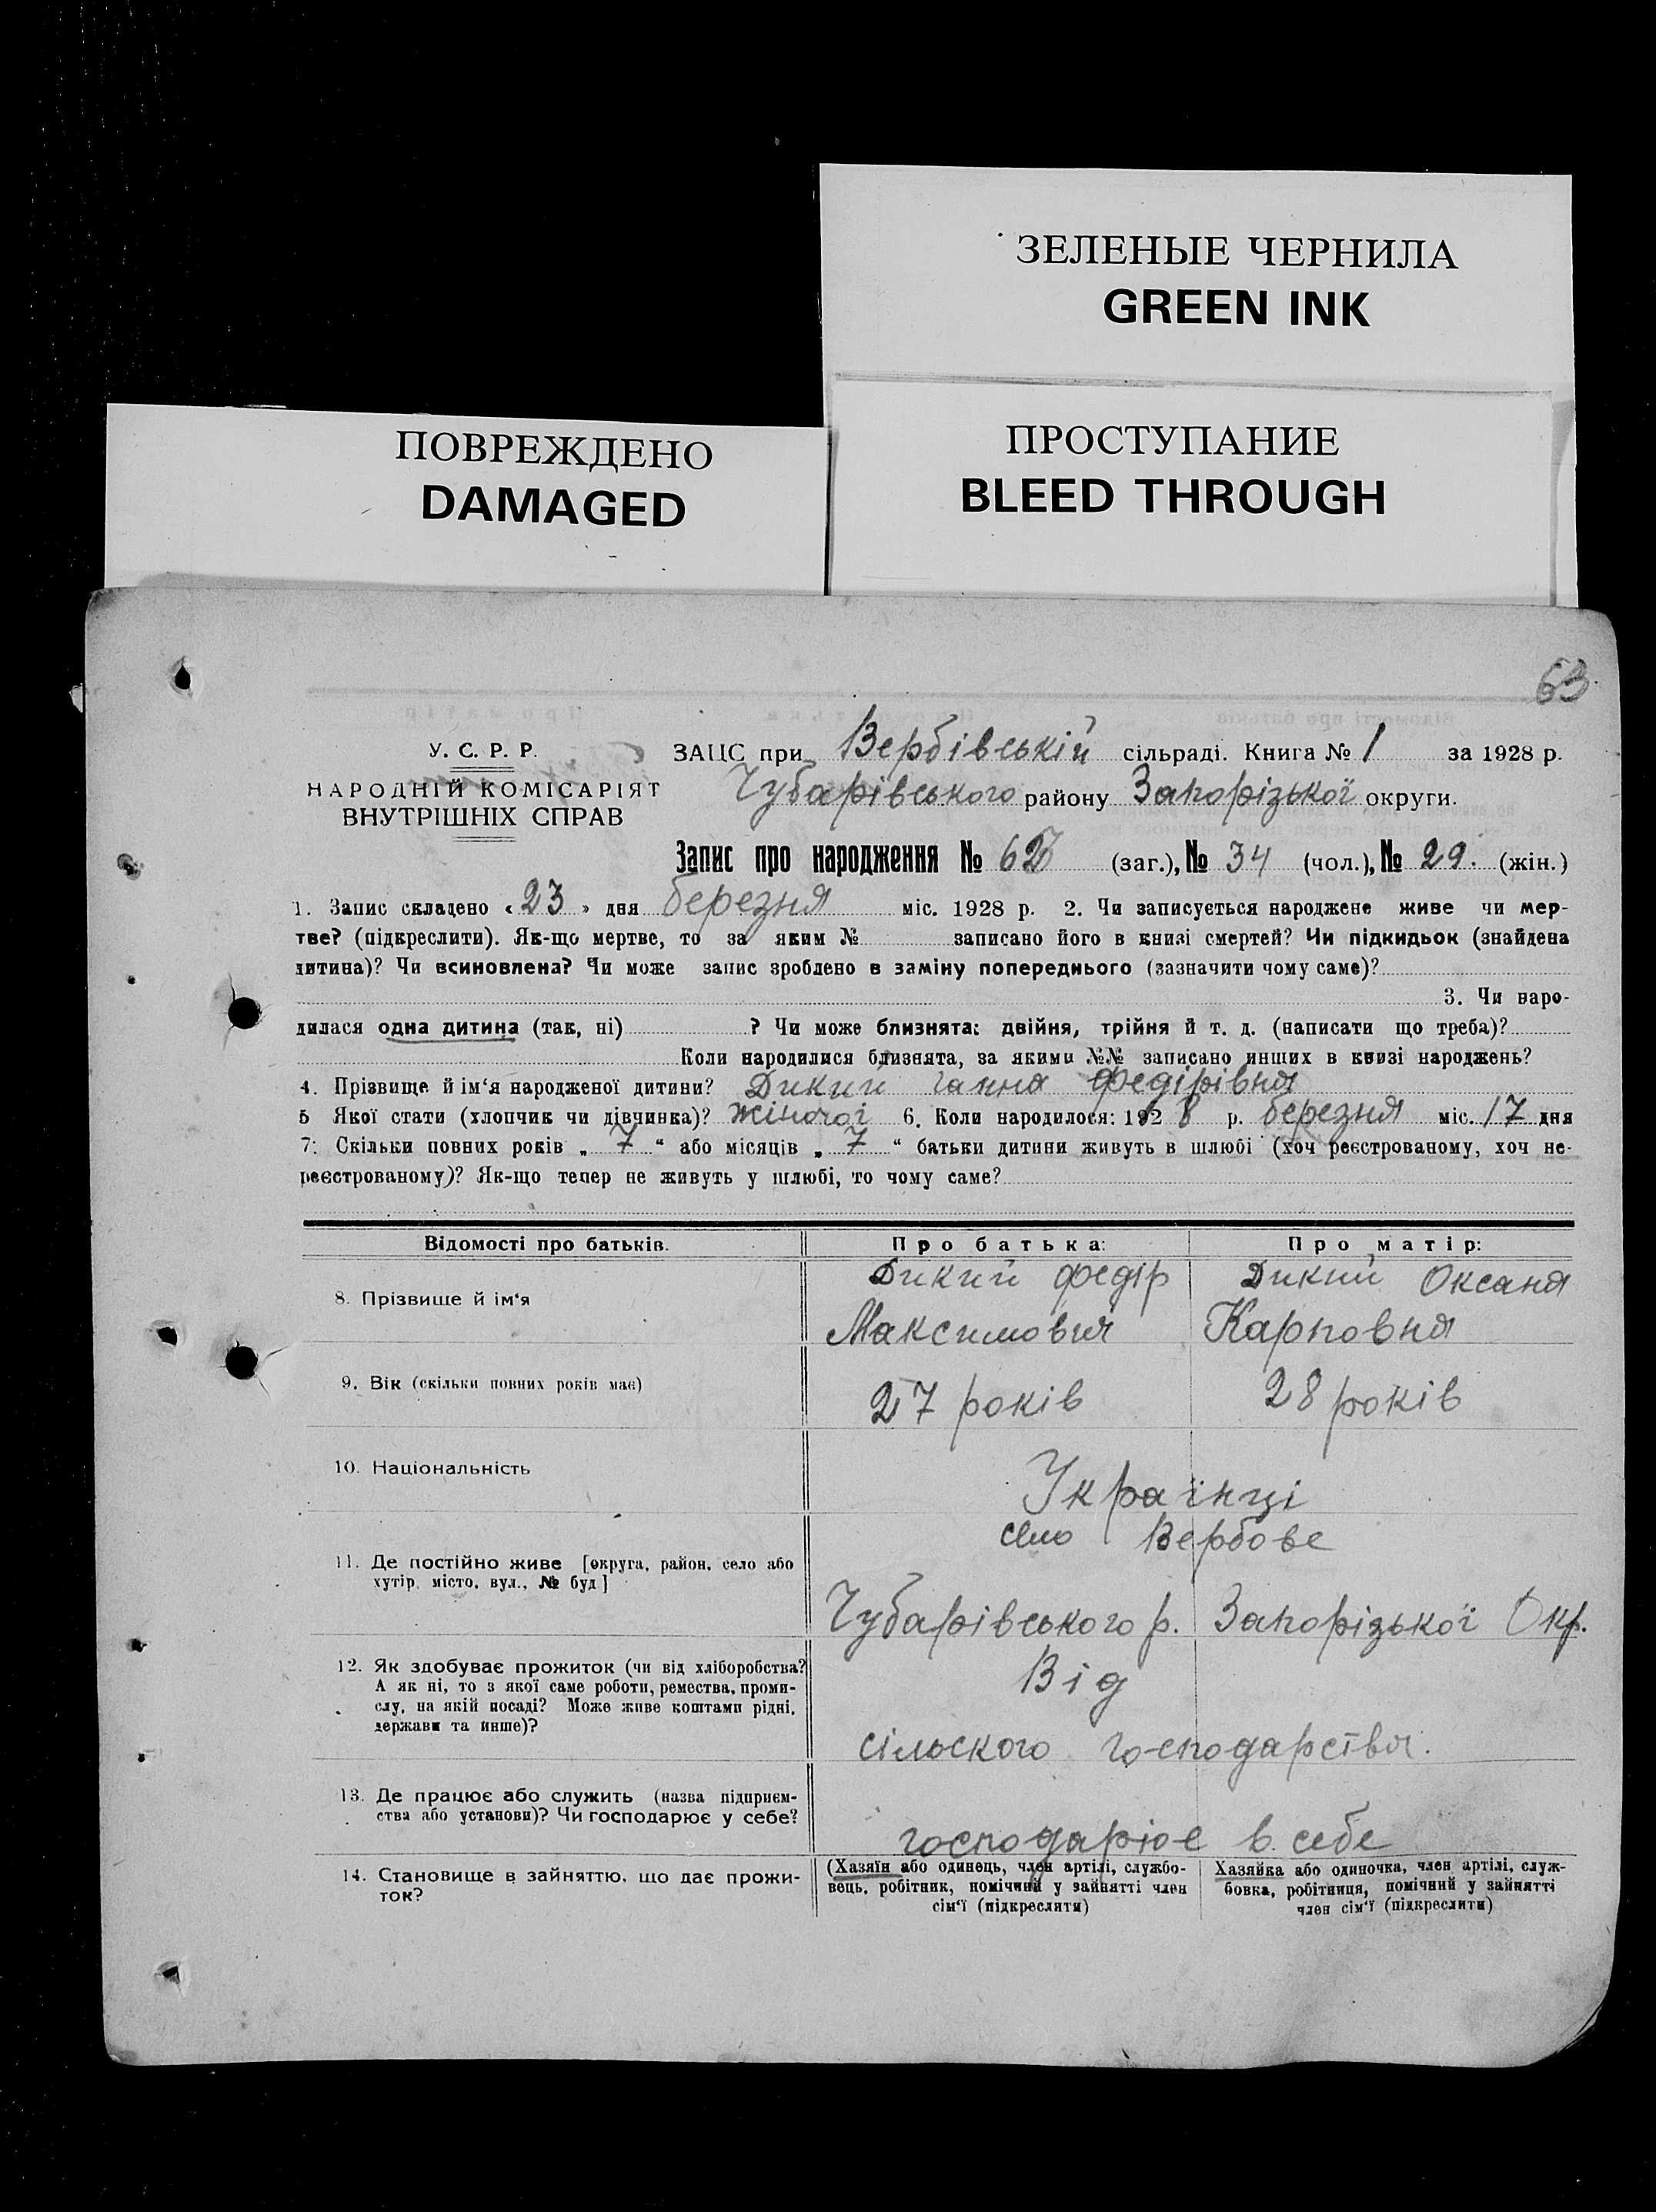 ЗЕЛЕНЫЕ ЧЕРНИЛА
GREEN INK
ПОВРЕЖДЕНО
DAMAGED
ПРОСТУПАНИЕ
BLEED THROUGH
63
У. С. Р. Р.
НАРОДНІЙ КОМІСАРІЯТ
ВНУТРІШНІХ СПРАВ
ЗАЦС при Вербівській сільраді. Книга № 1 за 1928 р.
Чубарівського району Запорізької округи.
Запис про народження № (заг.), № 34 (чол.), № 29. (жін.)
1. Запис складено « 23 » дня березня міс. 1928 р. 2. Чи записується народжене живе чи мер-
тве? (підкреслити). Як-що мертве, то за яким № записано його в книзі смертей? Чи підкидьок (знайдена
дитина)? Чи всиновлена? Чи може запис зроблено в заміну попереднього (зазначити чому саме)?
3. Чи наро-
дилася одна дитина (так, ні) ? Чи може близнята: двійня, трійня й т. д. (написати що треба)?
Коли народилися близнята, за якими №№ записано инших в книзі народжень?
4. Прізвище й ім‘я народженої дитини? Дикий Ганна Федірівна
5 Якої стати (хлопчик чи дівчинка)? жіночої 6. Коли народилося: 1928 р. березня міс. 17 дня
7: Скільки повних років „ 7 “ або місяців „ 7 “ батьки дитини живуть в шлюбі (хоч реєстрованому, хоч не-
реєстрованому)? Як-що тепер не живуть у шлюбі, то чому саме?
Відомості про батьків. Про батька: Про матір:
8. Прізвище й ім‘я
Дикий Федір Максимович
Дикий Оксана Карповна
9. Вік (скільки повних років має) 27 років 28 років
10. Національність Українці
11. Де постійно живе [округа, район, село або
хутір, місто, вул., № буд]
село Вербове
Чубарівського р. Запорізької Окр.
12. Як здобуває прожиток (чи від хліборобства?
А як ні, то з якої саме роботи, ремества, проми-
слу, на якій посаді? Може живе коштами рідні,
держави та инше)?
Від
сільского господарства.
13. Де працює або служить (назва підприєм-
ства або установи)? Чи господарює у себе?
господарює в себе
14. Становище в зайняттю, що дає прожи-
ток?
(Хазяїн або одинець, член артілі, службо-
вець, робітник, помічний у зайнятті член
сім‘ї (підкреслити)
Хазяйка або одиночка, член артілі, служ-
бовка, робітниця, помічний у зайнятті
член сім‘ї (підкреслити)